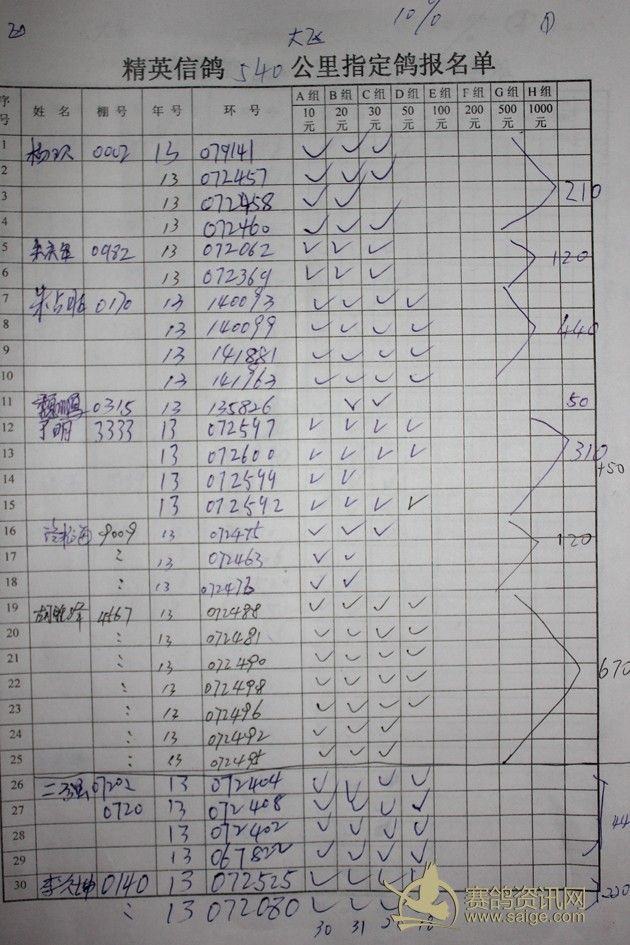 10% ①
大飞
精英信鸽 540 公里指定鸽报名单
序号 姓 名 棚 号 年 号 环 号 A 组 10 元 B 组 20 元 C 组 30 元 D 组 50 元 E 组 100 元 F 组 200 元 G 组 500 元 H 组 1000 元
1 0002 13 079141 ✓ ✓ ✓
2 13 072457 ✓ ✓ ✓
3 13 072458 ✓ ✓ 210
4 13 072460 ✓ ✓ ✓
5 0982 13 072062 ✓ ✓ ✓ 120
6 13 072369 ✓ ✓ ✓
7 0170 13 140093 ✓ ✓ ✓ ✓
8 13 140099 ✓ ✓ ✓ ✓ 440
9 13 141881 ✓ ✓ ✓ ✓
10 13 141963 ✓ ✓ ✓ ✓
11 0315 13 135826 ✓ ✓ 50
12 丁明 3333 13 072597 ✓ ✓ ✓ ✓
13 13 072600 ✓ ✓ ✓ ✓ 310
14 13 072599 ✓ ✓ +50
15 13 072592 ✓ ✓ ✓ ✓
16 9009 13 072475 ✓ ✓ ✓ 120
17 13 072463 ✓ ✓
18 13 072476 ✓ ✓
19 4567 13 072488 ✓ ✓ ✓ ✓
20 13 072481 ✓ ✓ ✓ ✓
21 13 072490 ✓ ✓ ✓ ✓ 670
22 13 072498 ✓ ✓ ✓ ✓
23 13 072496 ✓ ✓ ✓ ✓
24 13 072492 ✓ ✓ ✓
25 13 072495 ✓ ✓ ✓
26 07202 13 072404 ✓ ✓ ✓ ✓
27 0720 13 072408 ✓ ✓ ✓ ✓
28 13 072402 ✓ ✓ ✓ ✓ 44
29 13 067822 ✓ ✓ ✓ ✓
30 0140 13 072525 ✓ ✓ ✓ ✓ 220
13 072080 ✓ ✓ ✓ ✓
30 31
赛鸽资讯网
www.saige.com